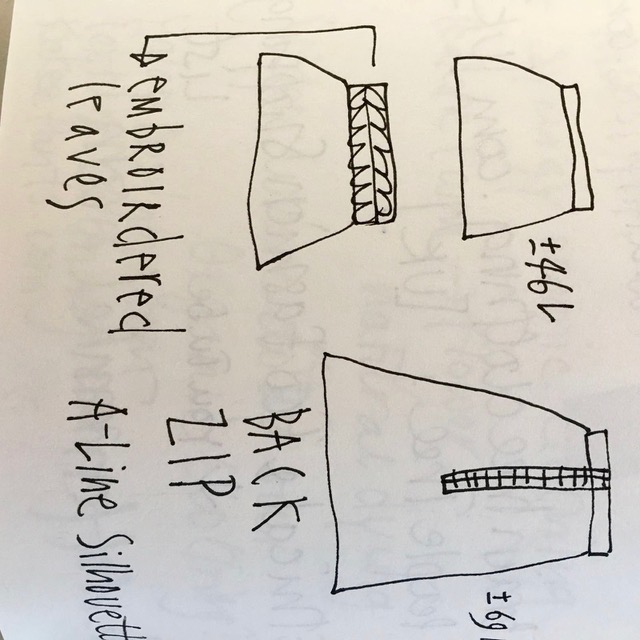 embroidered
leaves
BACK
ZIP
A-Line Silhouett